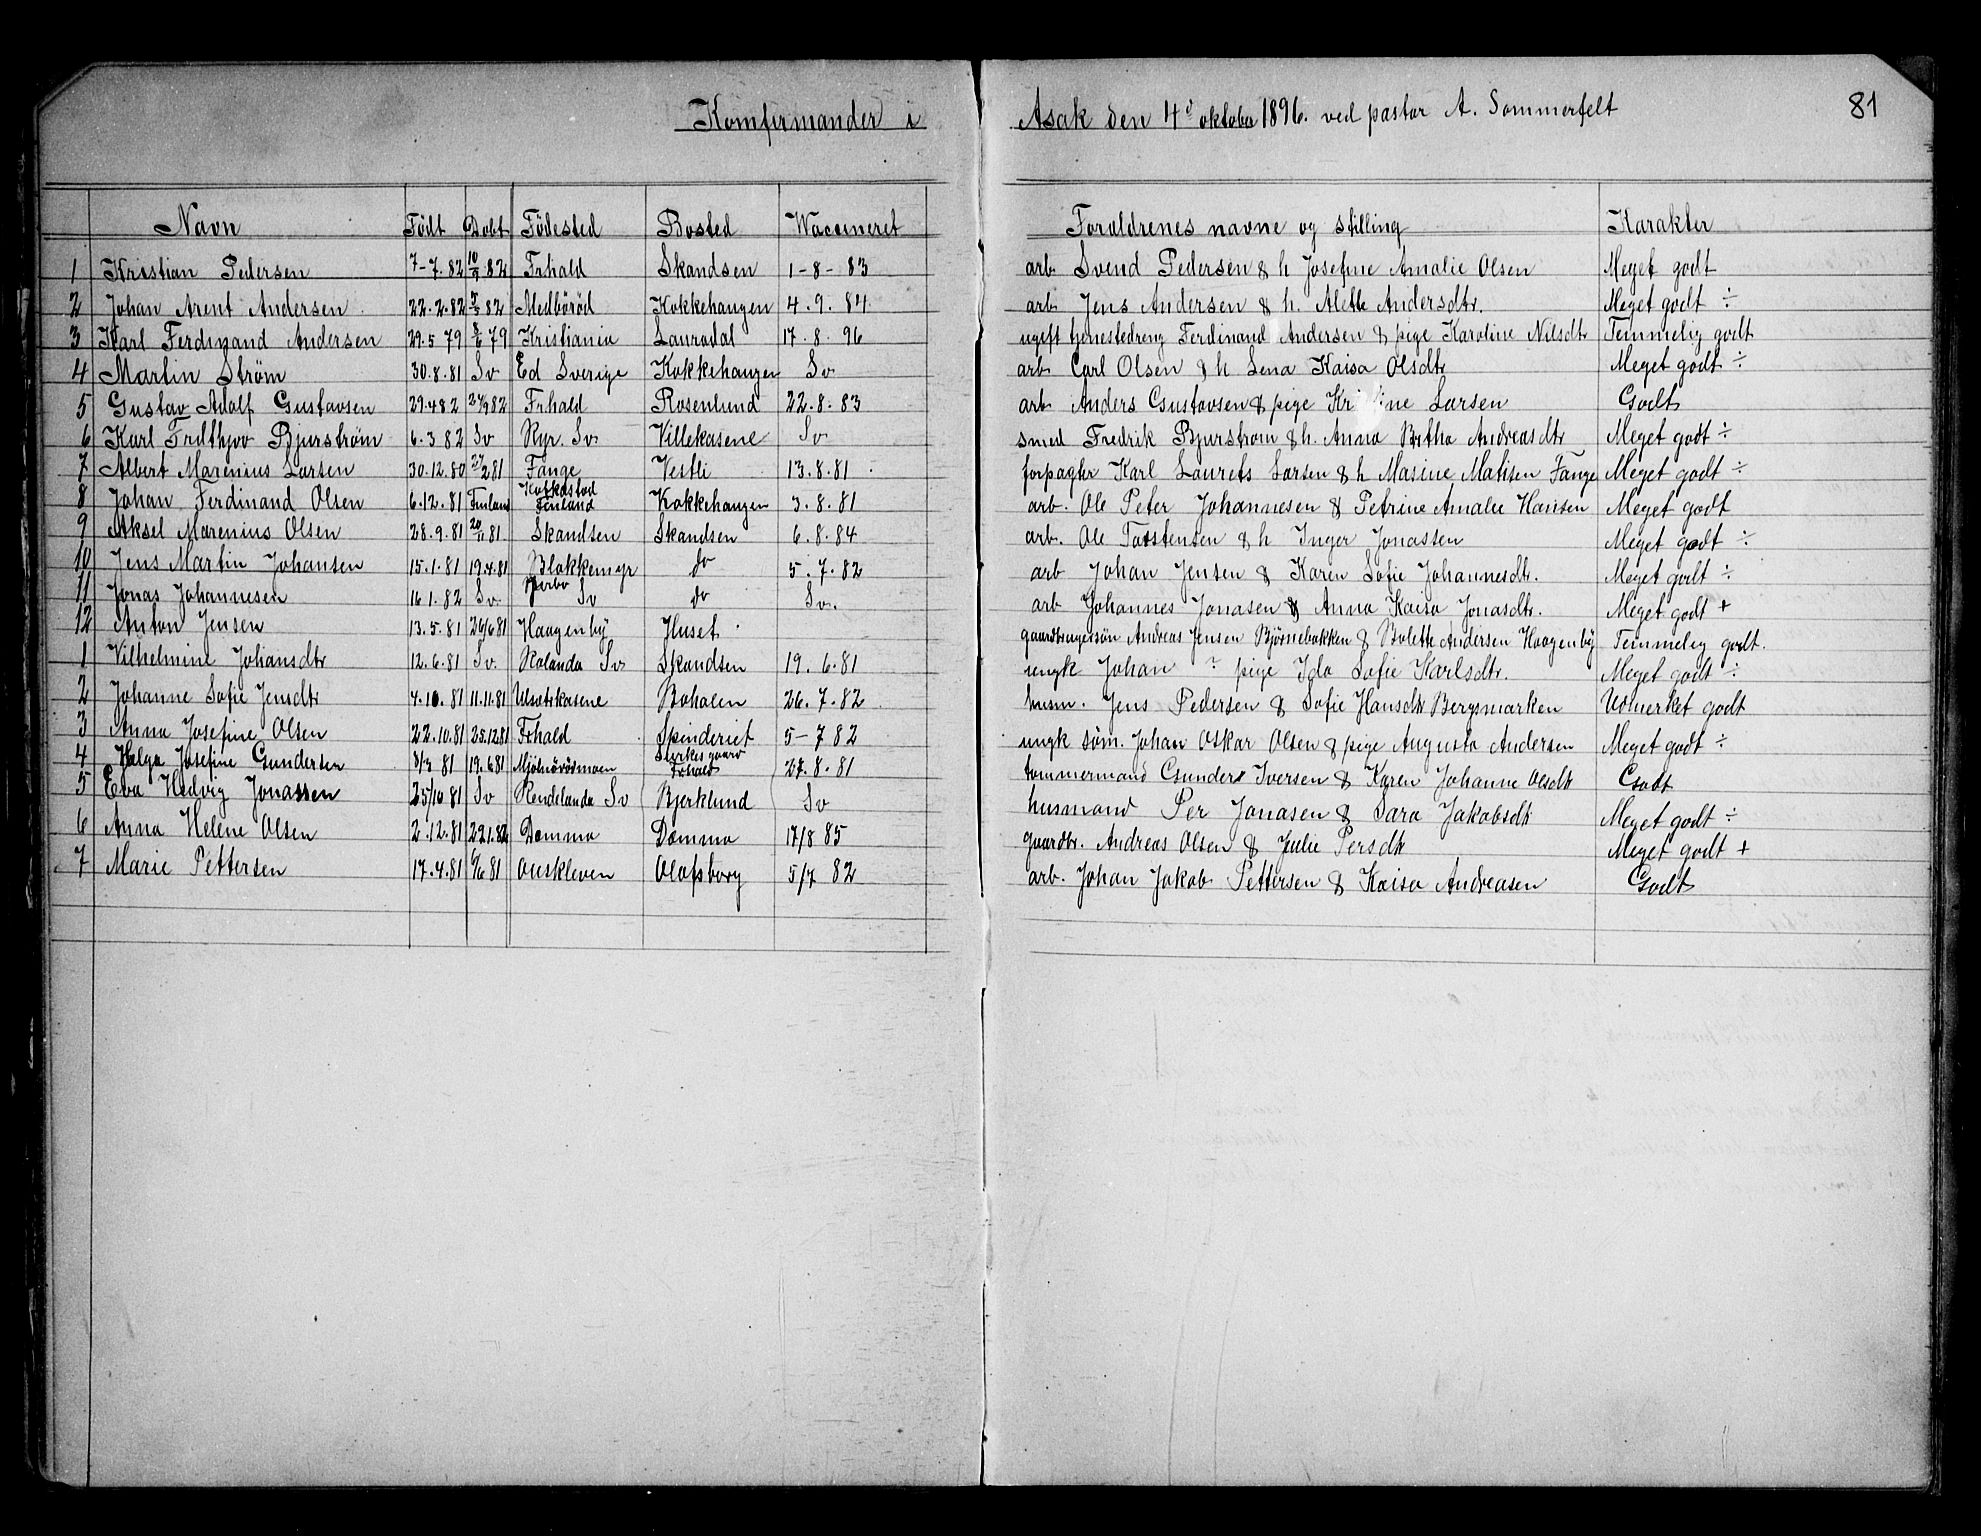 Komfirmander i Asak den 4d oktober 1896. ved pastor A. Sommerfelt 81
Navn Födt Döbt Födested Bosted Waccineret Foraldrenes navne og stilling Karakter
1 Kristian Pedersen 7-7.82 10/9 82 Frhald Skandsen 1-8-83 arb Svend Pedersen & h Josefine Amalie Olsen Meget godt
2 Johan Arent Andersen 22.2.82 82 Medböröd Kokkehaugen 4.9.84 arb. Jens Andersen & h. Alette Andersdtr. Meget godt ÷
3 Karl Ferdinand Andersen 29.5 79 8/6 79 Kristiania Lauradal 17.8.96 ugift tjenestedreng Ferdinand Andersen & pige Karoline Nilsdtr Temmelig godt
4 Martin Strøm 30.8.81 Sv Ed Sverige Kokkehaugen Sv arb Carl Olsen & h Lena Kaisa Olsdtr Meget godt ÷
5 Gustav Adolf Gustavsen 29.4 82 24/9 82 Frhald Rosenlund 22.8.83 arb Anders Gustavsen & pige Kri ine Larsen Godt
6 Karl Fridthjov Bjurstrøm 6.3 82 Sv Ryr. Sv Villekasene Sv smed Fredrik Bjurstrom & h. Anna Britha Andreasdtr Meget godt ÷
7 Albert Marenius Larsen 30.12.80 27/2 81 Fange Vestli 13.8.81. forpagter Karl Laurets Larsen & h Masine Matisen Fange Meget godt ÷
8 Johan Ferdinand Olsen 6.12.81 Finland Finland Kokkehaugen 3.8.81 arb. Ole Peter Johannesen & Petrine Amalie Hansen Meget godt
9 Aksel Marenius Olsen 28.9.81 20/11 81. Skandsen Skandsen 6.8.84 arb. Ole Torstensen & h Inger Jonassen Meget godt ÷
10 Jens Martin Johansen 15.1.81 19.4.81 Blakkemyr do 5.7.82 arb Johan Jensen & Karen Sofie Johannesdtr. Meget godt ÷
11 Jonas Johannesen 16 1.82 Sv Jarbo Sv do Sv. arb Johannes Jonasen & Anna Kaisa Jonasdtr. Meget godt +
12 Anton Jensen 13.5.81 26/6 81 Haagenby Huset. gaardbrugersön Andreas Jensen Björnebakken & Bolette Andersen Haagenby Temmelig godt.
1 Vilhelmine Johansdtr 12.6.81 Sv. Rolanda Sv Skandsen 19.6.81 ungk Johan ? pige Ida Sofie Karlsdtr. Meget godt ÷
2 Johanne Sofie Jensdtr 4.10.81 11.11.81 Ulvatikasene Bakalen 26.7.82. husm. Jens Pedersen & Sofie Hansdtr Bergsmarken Udmerket godt
3 Anna Josefine Olsen 22.10.81 25.12.81 Frhald Spinderiet 5-7 82 ungk söm. Johan Oskar Olsen & pige Augusta Andersen Meget godt ÷
4 Helga Josefine Gundersen 8/3 81 19.6.81 Mjölnörödsmoen Styrkesgaard Frhald 27.8.81 tommermand Gunder Iversen & Karen Johanne Olsdtr Godt
5 Eva Hedvig Jonassen 25/10 81 Sv Rendelanda Sv Bjerklund Sv husmand Per Jonasen & Sara Jakobsdtr Meget godt ÷
6 Anna Helene Olsen 2.12.81 22.1.82 Damma Damma 17/8 85 gaardbr. Andreas Olsen & Julie Persdtr Meget godt +
7 Marie Pettersen 17.4.81 6/6 81 Ouskleven Olafsborg 5/7 82 arb. Johan Jakob Pettersen & Kaisa Andreasen Godt